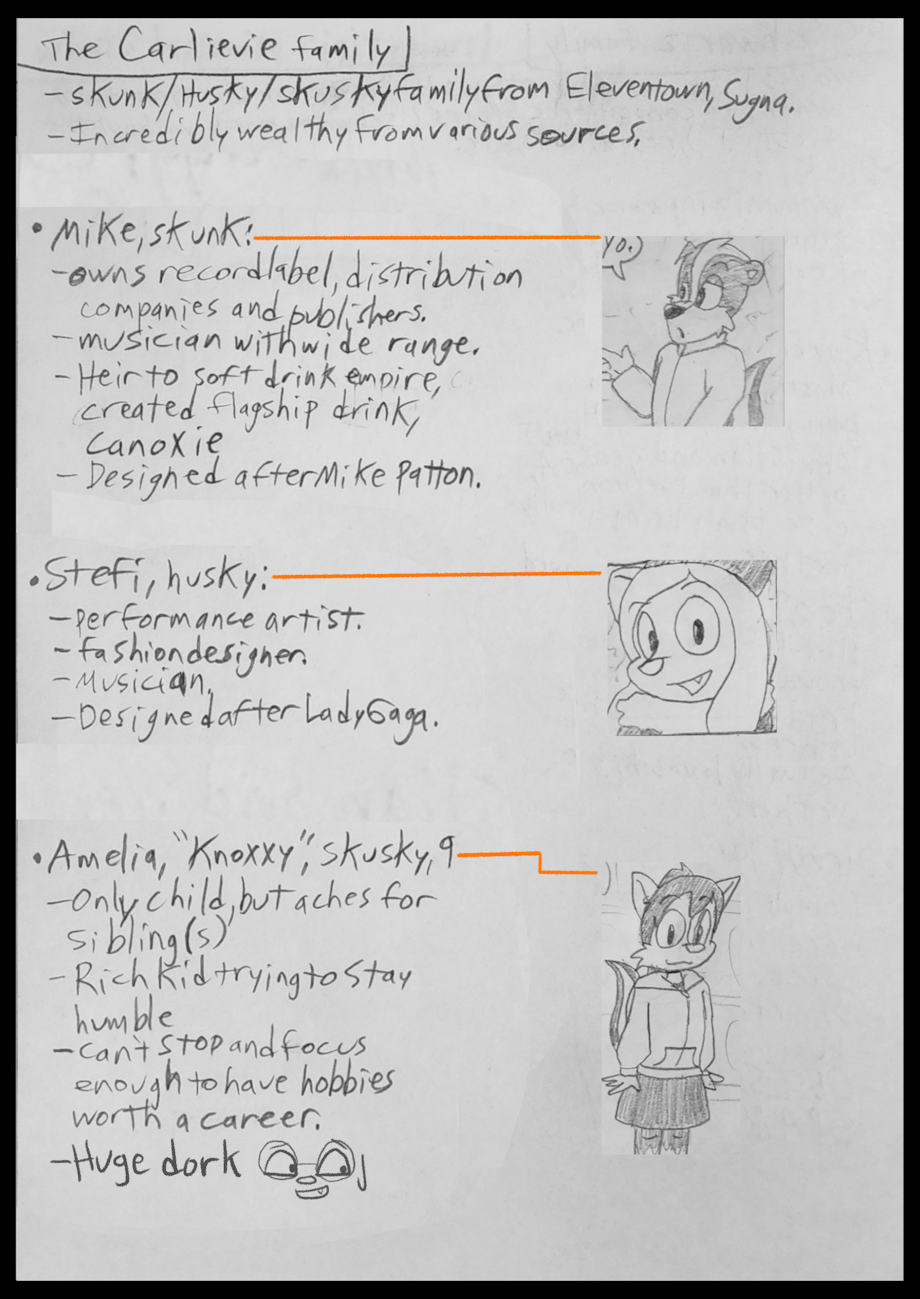 The Carlievie family
-skunk/Husky/skusky family from Eleventown, Sugna.
-Incredibly wealthy from various sources.
• Mike, skunk:
-owns record label, distribution
companies and publishers.
-musician with wide range.
-Heir to soft drink empire,
created flagship drink,
Canoxie
-Designed after Mike Patton.
Yo.
• Stefi, husky:
-performance artist.
-fashion designer.
-Musician.
-Designed after Lady Gaga.
• Amelia, "Knoxxy", skusky, 9
-Only child, but aches for
sibling(s)
-Rich kid trying to stay
humble
-can't stop and focus
enough to have hobbies
worth a career.
-Huge dork